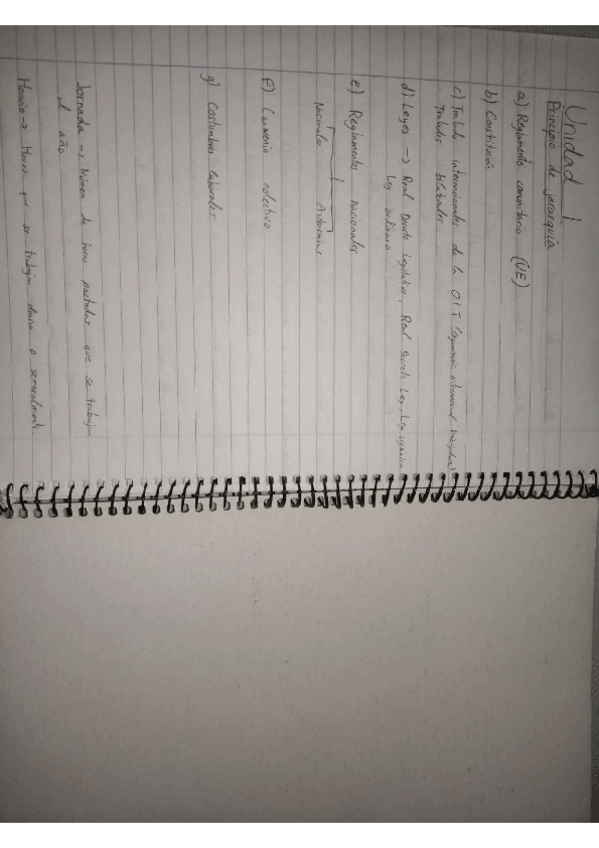 Unidad 1
Principio de jerarquía
a) Reglamento comunitario (UE)
b) Constitución
c) Tratado internacionales de la OIT (organización internacional trabajadores)
Tratados bilaterales
d) Leyes → Real Decreto Legislativo, Real Decreto Ley, Ley organica
Ley ordinaria
e) Reglamentos nacionales
Nacionales Autonomas
f) Convenio colectivo
g) Costumbres laborales
Jornada → Número de horas pactadas que se trabajan
al año
Horario → Horas que se trabajan diaria o semanalmente.